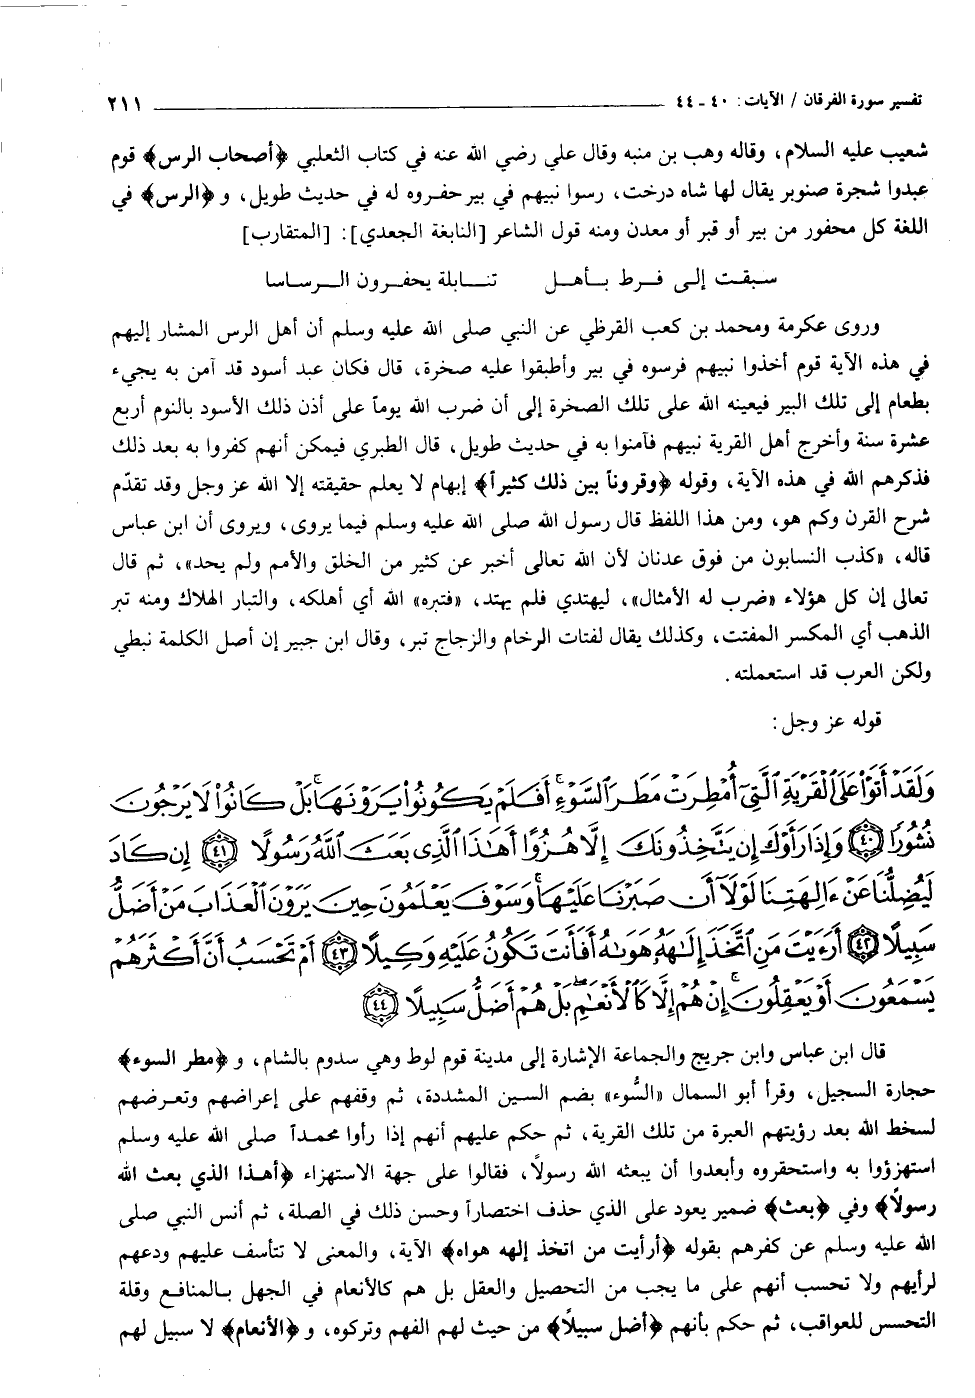 تفسير سورة الفرقان / الآيات: ٤٠ - ٤٤ ٢١١
شعيب عليه السلام، وقاله وهب بن منبه وقال علي رضي الله عنه في كتاب الثعلبي ﴿أصحاب الرس﴾ قوم
عبدوا شجرة صنوبر يقال لها شاه درخت، رسوا نبيهم في بير حفروه له في حديث طويل، و ﴿الرس﴾ في
اللغة كل محفور من بير أو قبر أو معدن ومنه قول الشاعر [النابغة الجعدي]: [المتقارب]
سبقت إلى فرط بأهل تنابلة يحفرون الرساسا
وروى عكرمة ومحمد بن كعب القرظي عن النبي صلى الله عليه وسلم أن أهل الرس المشار إليهم
في هذه الآية قوم أخذوا نبيهم فرسوه في بير وأطبقوا عليه صخرة، قال فكان عبد أسود قد آمن به يجيء
بطعام إلى تلك البير فيعينه الله على تلك الصخرة إلى أن ضرب الله يوماً على أذن ذلك الأسود بالنوم أربع
عشرة سنة وأخرج أهل القرية نبيهم فآمنوا به في حديث طويل، قال الطبري فيمكن أنهم كفروا به بعد ذلك
فذكرهم الله في هذه الآية، وقوله ﴿وقروناً بين ذلك كثيراً﴾ إبهام لا يعلم حقيقته إلا الله عز وجل وقد تقدّم
شرح القرن وكم هو، ومن هذا اللفظ قال رسول الله صلى الله عليه وسلم فيما يروى، ويروى أن ابن عباس
قاله، «كذب النسابون من فوق عدنان لأن الله تعالى أخبر عن كثير من الخلق والأمم ولم يحد»، ثم قال
تعالى إن كل هؤلاء «ضرب له الأمثال»، ليهتدي فلم يهتد، «فتبره» الله أي أهلكه، والتبار الهلاك ومنه تبر
الذهب أي المكسر المفتت، وكذلك يقال لفتات الرخام والزجاج تبر، وقال ابن جبير إن أصل الكلمة نبطي
ولكن العرب قد استعملته.
قوله عز وجل:
وَلَقَدْ أَتَوْا۟ عَلَى ٱلْقَرْيَةِ ٱلَّتِىٓ أُمْطِرَتْ مَطَرَ ٱلسَّوْءِ ۚ أَفَلَمْ يَكُونُوا۟ يَرَوْنَهَا ۚ بَلْ كَانُوا۟ لَا يَرْجُونَ
نُشُورًا ﴿٤٠﴾ وَإِذَا رَأَوْكَ إِن يَتَّخِذُونَكَ إِلَّا هُزُوًا أَهَٰذَا ٱلَّذِى بَعَثَ ٱللَّهُ رَسُولًا ﴿٤١﴾ إِن كَادَ
لَيُضِلُّنَا عَنْ ءَالِهَتِنَا لَوْلَآ أَن صَبَرْنَا عَلَيْهَا ۚ وَسَوْفَ يَعْلَمُونَ حِينَ يَرَوْنَ ٱلْعَذَابَ مَنْ أَضَلُّ
سَبِيلًا ﴿٤٢﴾ أَرَءَيْتَ مَنِ ٱتَّخَذَ إِلَٰهَهُۥ هَوَىٰهُ أَفَأَنتَ تَكُونُ عَلَيْهِ وَكِيلًا ﴿٤٣﴾ أَمْ تَحْسَبُ أَنَّ أَكْثَرَهُمْ
يَسْمَعُونَ أَوْ يَعْقِلُونَ ۚ إِنْ هُمْ إِلَّا كَٱلْأَنْعَٰمِ ۖ بَلْ هُمْ أَضَلُّ سَبِيلًا ﴿٤٤﴾
قال ابن عباس وابن جريج والجماعة الإشارة إلى مدينة قوم لوط وهي سدوم بالشام، و ﴿مطر السوء﴾
حجارة السجيل، وقرأ أبو السمال «السُّوء» بضم السين المشددة، ثم وقفهم على إعراضهم وتعرضهم
لسخط الله بعد رؤيتهم العبرة من تلك القرية، ثم حكم عليهم أنهم إذا رأوا محمداً صلى الله عليه وسلم
استهزؤوا به واستحقروه وأبعدوا أن يبعثه الله رسولاً، فقالوا على جهة الاستهزاء ﴿أهذا الذي بعث الله
رسولاً﴾ وفي ﴿بعث﴾ ضمير يعود على الذي حذف اختصاراً وحسن ذلك في الصلة، ثم أنس النبي صلى
الله عليه وسلم عن كفرهم بقوله ﴿أرأيت من اتخذ إلهه هواه﴾ الآية، والمعنى لا تتأسف عليهم ودعهم
لرأيهم ولا تحسب أنهم على ما يجب من التحصيل والعقل بل هم كالأنعام في الجهل بالمنافع وقلة
التحسس للعواقب، ثم حكم بأنهم ﴿أضل سبيلاً﴾ من حيث لهم الفهم وتركوه، و ﴿الأنعام﴾ لا سبيل لهم